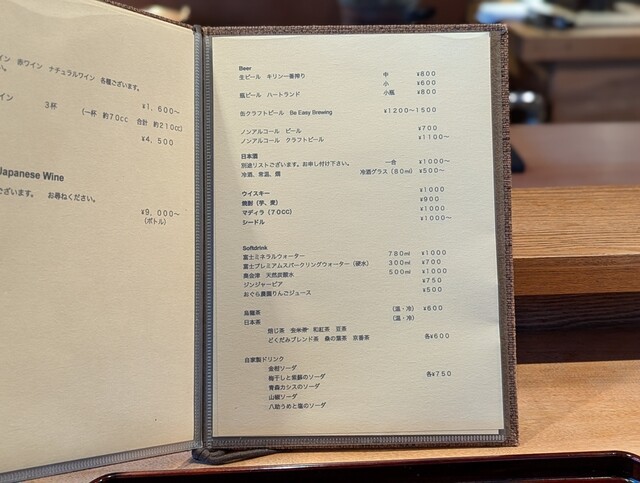 赤ワイン ナチュラルワイン 各種ございます。
¥1,600〜
3杯 (一杯 約70cc 合計 約210cc)
¥4,500
Japanese Wine
ございます。 お尋ねください。
¥9,000〜
(ボトル)
Beer
生ビール キリン一番搾り 中 ¥800
小 ¥600
瓶ビール ハートランド 小瓶 ¥800
缶クラフトビール Be Easy Brewing ¥1200〜1500
ノンアルコール ビール ¥700
ノンアルコール クラフトビール ¥1100〜
日本酒
別途リストございます。お申し付け下さい。 一合 ¥1000〜
冷酒、常温、燗 冷酒グラス(80ml) ¥500〜
ウイスキー ¥1000
焼酎(芋、麦) ¥900
マディラ(70CC) ¥1000
シードル ¥1000〜
Softdrink
富士ミネラルウォーター 780ml ¥1000
富士プレミアムスパークリングウォーター(硬水) 300ml ¥700
奥会津 天然炭酸水 500ml ¥1000
ジンジャービア ¥750
おぐら農園りんごジュース ¥500
烏龍茶 (温・冷) ¥600
日本茶 (温・冷)
焙じ茶 玄米茶 和紅茶 豆茶
どくだみブレンド茶 桑の葉茶 京番茶 各¥600
自家製ドリンク
金柑ソーダ
梅干しと紫蘇のソーダ 各¥750
青森カシスのソーダ
山椒ソーダ
八助うめと塩のソーダ